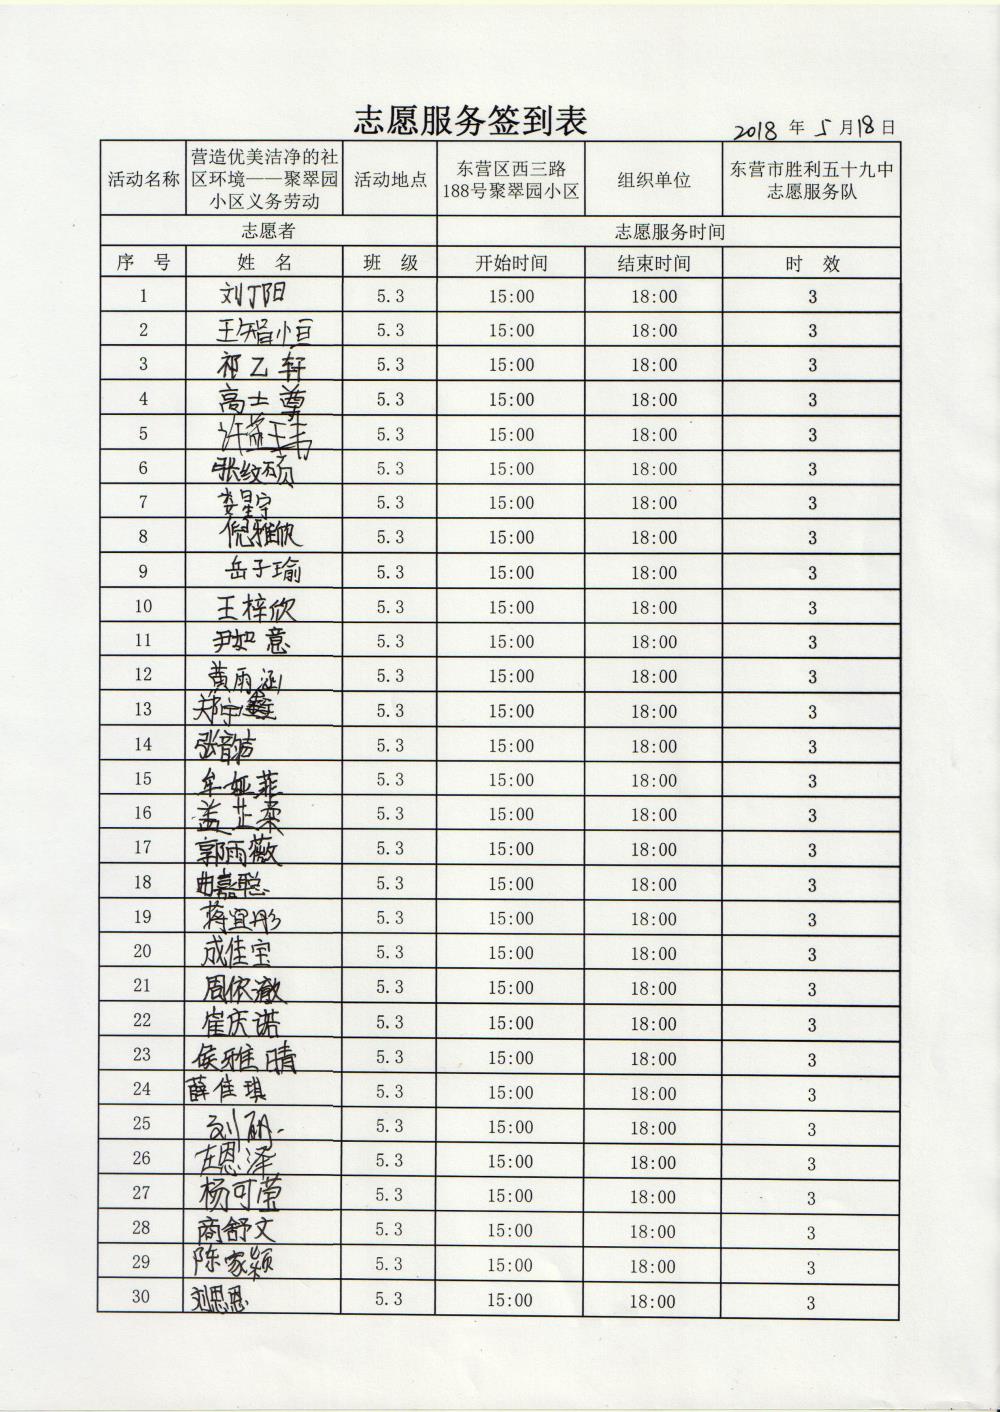 志愿服务签到表
2018 年 5 月 18 日
活动名称 营造优美洁净的社区环境——聚翠园小区义务劳动 活动地点 东营区西三路188号聚翠园小区 组织单位 东营市胜利五十九中志愿服务队
志愿者 志愿服务时间
序 号 姓 名 班 级 开始时间 结束时间 时 效
1 刘丁阳 5.3 15:00 18:00 3
2 王智恒 5.3 15:00 18:00 3
3 祁乙轩 5.3 15:00 18:00 3
4 高士尊 5.3 15:00 18:00 3
5 许益玮 5.3 15:00 18:00 3
6 张纹硕 5.3 15:00 18:00 3
7 娄星宇 5.3 15:00 18:00 3
8 倪雅欣 5.3 15:00 18:00 3
9 岳子瑜 5.3 15:00 18:00 3
10 王梓欣 5.3 15:00 18:00 3
11 尹如意 5.3 15:00 18:00 3
12 黄雨涵 5.3 15:00 18:00 3
13 郑宁 5.3 15:00 18:00 3
14 张韵洁 5.3 15:00 18:00 3
15 牟娅菲 5.3 15:00 18:00 3
16 盖芷柔 5.3 15:00 18:00 3
17 郭雨薇 5.3 15:00 18:00 3
18 曲嘉聪 5.3 15:00 18:00 3
19 蒋宜彤 5.3 15:00 18:00 3
20 成佳宝 5.3 15:00 18:00 3
21 周依澈 5.3 15:00 18:00 3
22 崔庆诺 5.3 15:00 18:00 3
23 侯雅晴 5.3 15:00 18:00 3
24 薛佳琪 5.3 15:00 18:00 3
25 刘 5.3 15:00 18:00 3
26 庄恩泽 5.3 15:00 18:00 3
27 杨可莹 5.3 15:00 18:00 3
28 商舒文 5.3 15:00 18:00 3
29 陈家颖 5.3 15:00 18:00 3
30 刘思恩 5.3 15:00 18:00 3